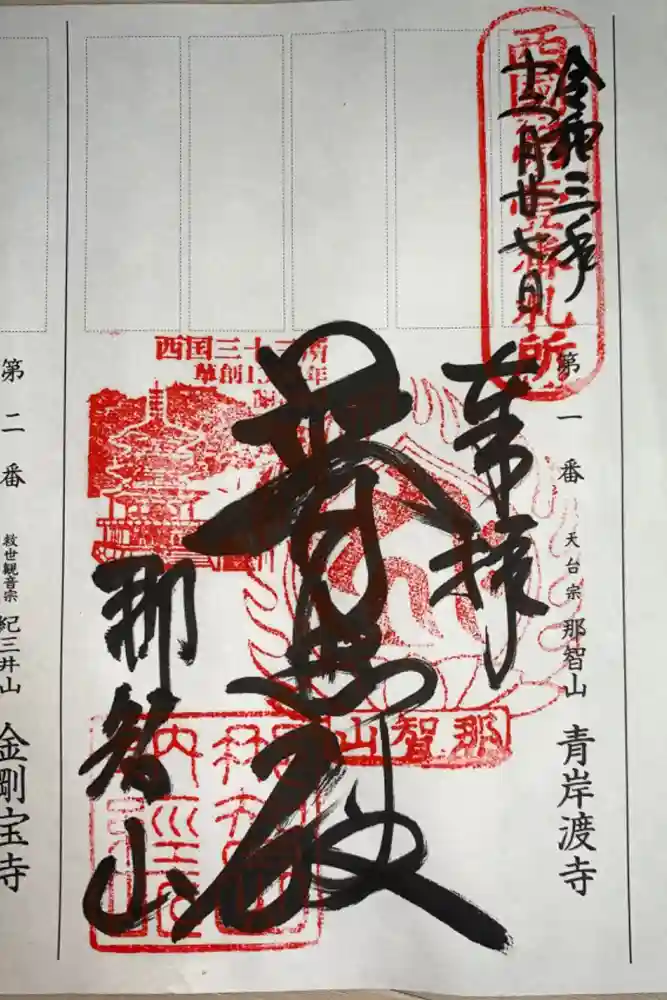 西国第壹番札所
令和三年
十二月廿七日
第一番 天台宗 那智山 青岸渡寺
奉拝
普照殿
那智山
西国三十三所
草創13 年
那智山
第二番 救世観音宗 紀三井山 金剛宝寺